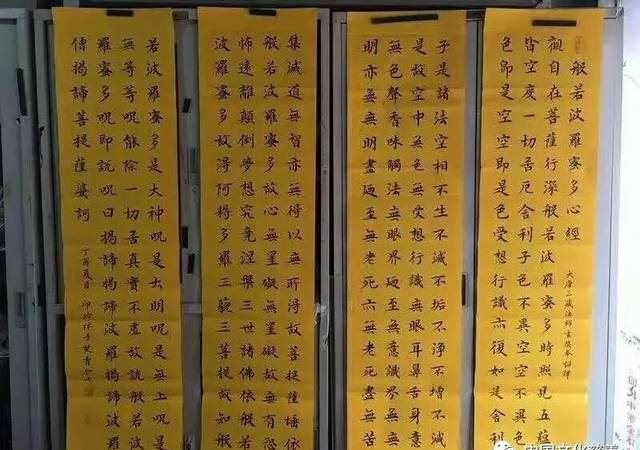 般若波羅蜜多心經
大唐三藏法師玄奘奉詔譯
觀自在菩薩行深般若波羅蜜多時照見五蘊
皆空度一切苦厄舍利子色不異空空不異色
色即是空空即是色受想行識亦復如是舍利
子是諸法空相不生不滅不垢不淨不增不減
是故空中無色無受想行識無眼耳鼻舌身意
無色聲香味觸法無眼界廼至無意識界無無
明亦無無明盡廼至無老死亦無老死盡無苦
集滅道無智亦無得以無所得故菩提薩埵依
般若波羅蜜多故心無罣礙無罣礙故無有恐
怖遠離顛倒夢想究竟涅槃三世諸佛依般若
波羅蜜多故得阿耨多羅三藐三菩提故知般
若波羅蜜多是大神呪是大明呪是無上呪是
無等等呪能除一切苦真實不虛故說般若波
羅蜜多呪即說呪曰揭諦揭諦波羅揭諦波羅
僧揭諦菩提薩婆訶
丁酉夏月